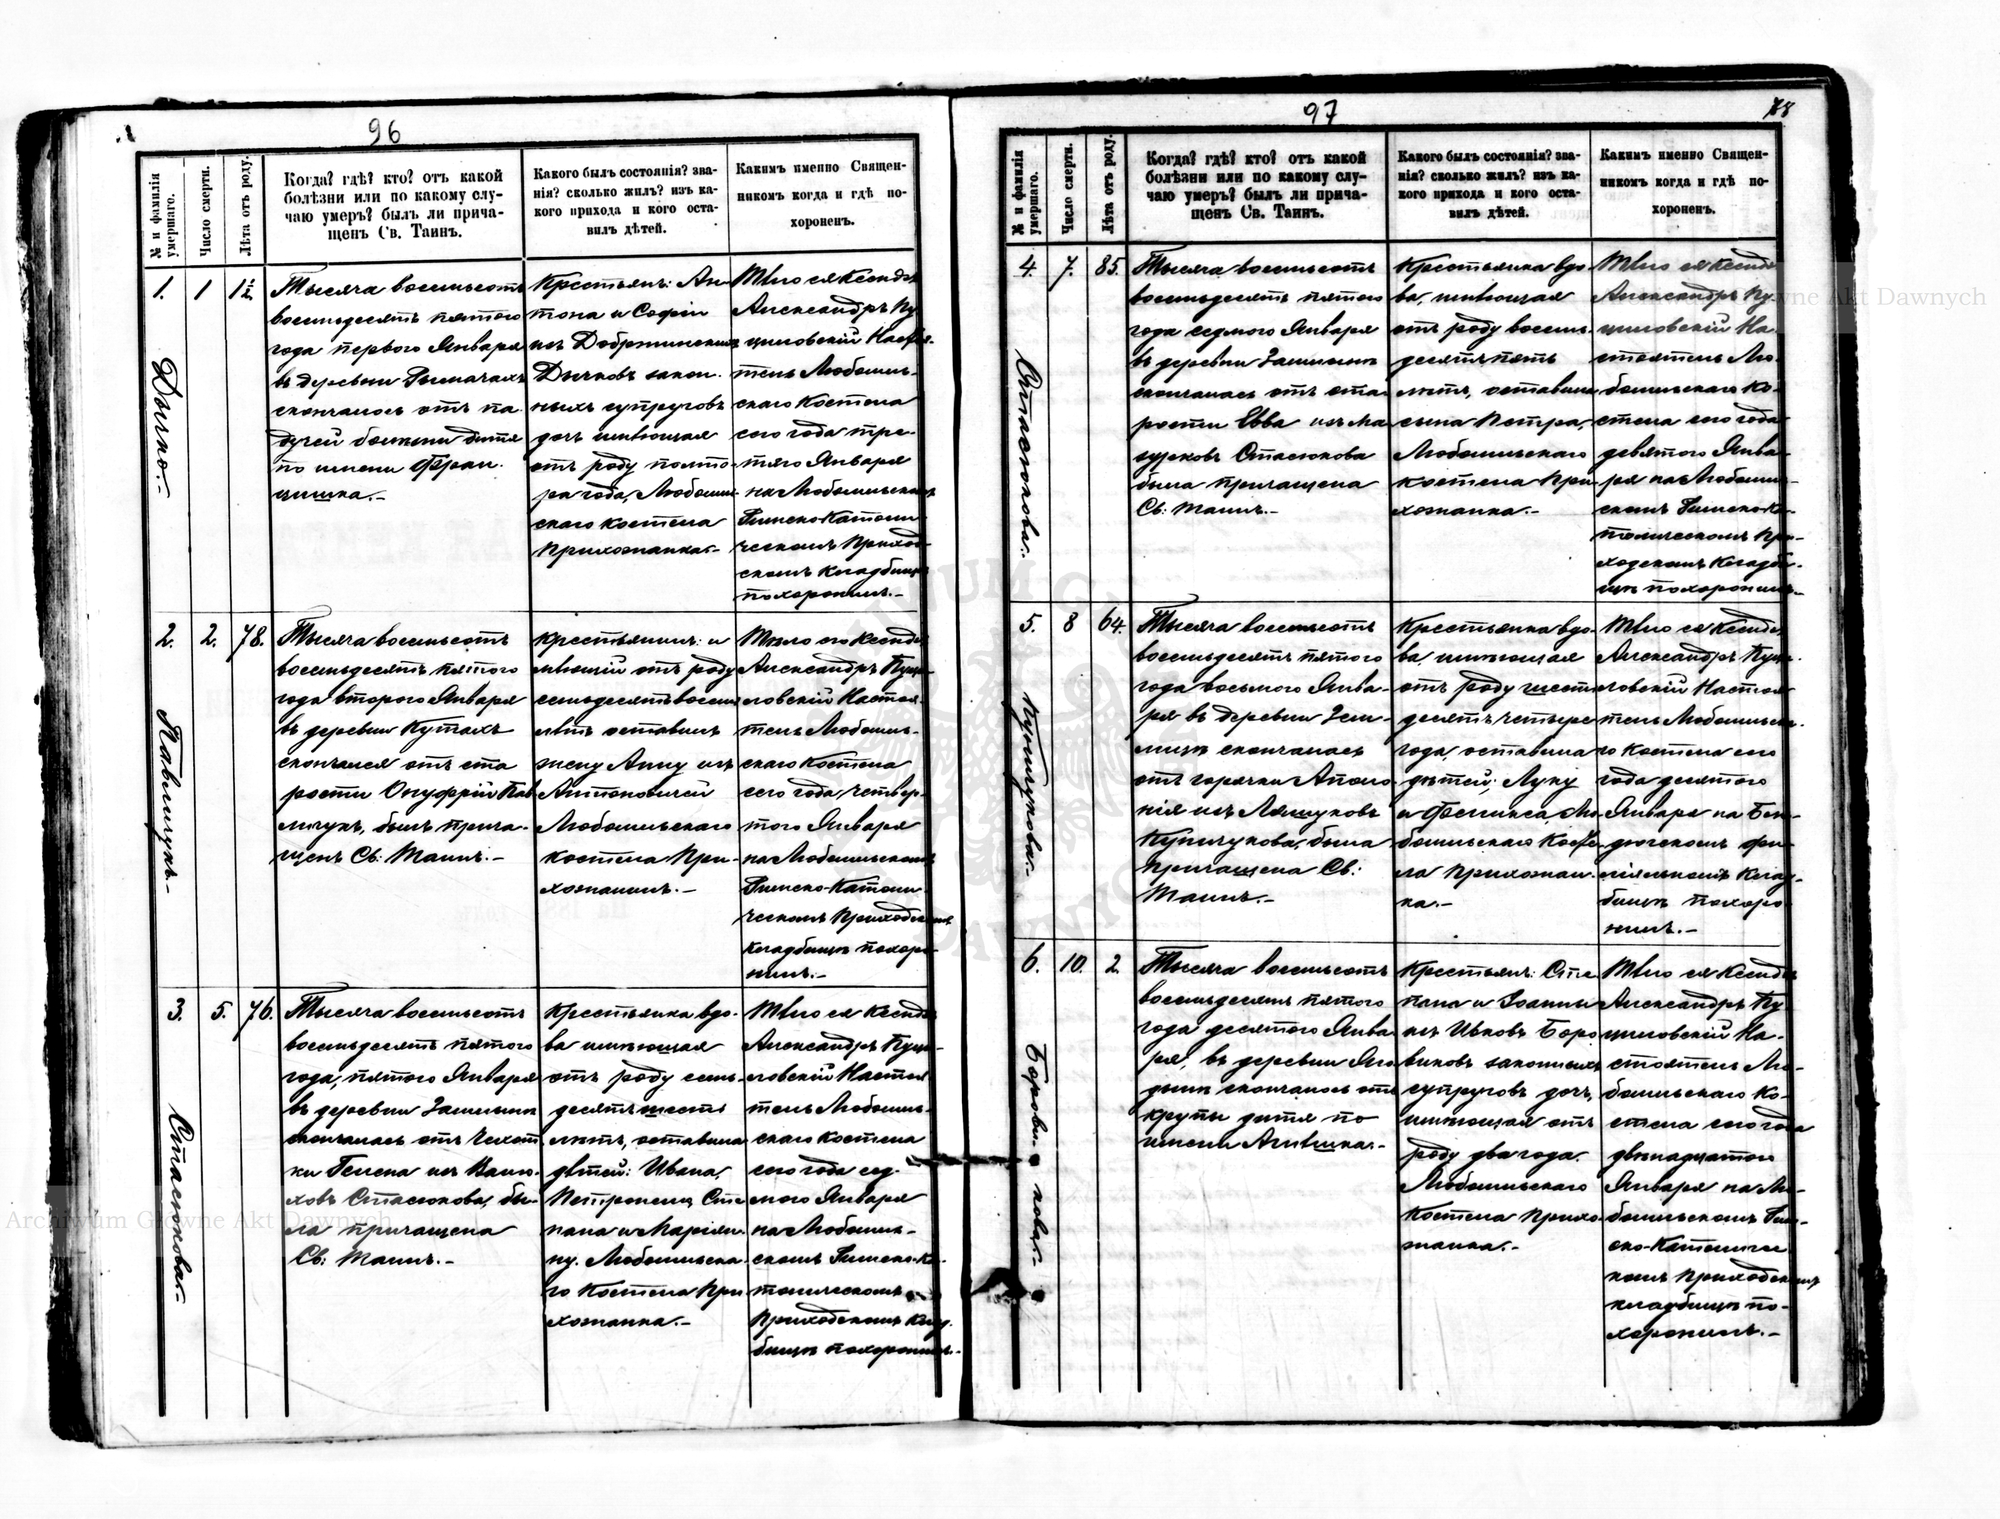 96
№ и фамилія умершаго.
Число смерти.
Лѣта отъ роду.
Когда? гдѣ? кто? отъ какой
болѣзни или по какому слу-
чаю умеръ? былъ ли прича-
щенъ Св. Таинъ.
Какого былъ состоянія? зва-
нія? сколько жилъ? изъ ка-
кого прихода и кого оста-
вилъ дѣтей.
Какимъ именно Священ-
никомъ когда и гдѣ по-
хороненъ.
1.
Дычко.-
1
1½
Тысяча восемьсотъ
восемьдесятъ пятого
года перваго Января
въ деревни Рымачахъ
скончалось отъ па-
дучей болѣзни дитя
по имени Фран-
цишка.-
Крестьянъ: Ан-
тона и Софіи
изъ Добржинскихъ
Дычковъ закон-
ныхъ супруговъ
дочь имѣющая
отъ роду полто-
ра года, Любомль-
скаго костела
прихожанка.-
Тѣло ея Ксендзъ
Александръ
Настоя-
тель Любомль-
скаго Костела
сего года тре-
тяго Января
на Любомльскомъ
Римско-Католи-
ческомъ Приход-
скомъ кладбищѣ
похоронилъ.-
2.
Павлищукъ.-
2.
78.
Тысяча восемьсотъ
восемьдесятъ пятого
года второго Января
въ деревни Кутахъ
скончался отъ ста-
рости Онуфрій Пав-
лищукъ, былъ прича-
щенъ Св: Таинъ.-
Крестьянинъ: и
мѣющій отъ роду
семьдесятъ восемь
лѣтъ оставилъ
жену Анну изъ
Антоновичей
Любомльскаго
костела При-
хожанинъ.-
Тѣло его Ксендзъ
Александръ
Настоя-
тель Любомль-
скаго Костела
сего года, четвер-
того Января
на Любомльскомъ
Римско-Католи-
ческомъ Приходскомъ
кладбищѣ похоро-
нилъ.-
3.
Стасюкова.-
5.
76.
Тысяча восемьсотъ
восемьдесятъ пятого
года, пятого Января
въ деревни
скончалась отъ чехот-
ки Гелена изъ
Стасюкова, бы-
ла причащена
Св: Таинъ.-
Крестьянка вдо-
ва имѣющая
отъ роду семь-
десятъ шесть
лѣтъ, оставила
дѣтей: Ивана,
Петронелю, Сте-
пана и Маріян-
ну. Любомльска-
го Костела При-
хожанка.-
Тѣло ея Ксендзъ
Александръ
Настоя-
тель Любомль-
скаго Костела
сего года сед-
мого Января
на Любомль-
скомъ Римско-Ка-
толическомъ
Приходскомъ клад-
бищѣ похоронилъ.-
97
78
№ и фамилія умершаго.
Число смерти.
Лѣта отъ роду.
Когда? гдѣ? кто? отъ какой
болѣзни или по какому слу-
чаю умеръ? былъ ли прича-
щенъ Св. Таинъ.
Какого былъ состоянія? зва-
нія? сколько жилъ? изъ ка-
кого прихода и кого оста-
вилъ дѣтей.
Какимъ именно Священ-
никомъ когда и гдѣ по-
хороненъ.
4.
Стасюкова.-
7.
85.
Тысяча восемьсотъ
восемьдесятъ пятого
года седмого Января
въ деревни
скончалась отъ ста-
рости Евва изъ Ма-
зурковъ Стасюкова
была причащена
Св: Таинъ.-
Крестьянка вдо-
ва, имѣющая
отъ роду восемь-
десятъ пять
лѣтъ, оставила
сына Петра,
Любомльскаго
костела При-
хожанка.-
Тѣло ея Ксендзъ
Александръ
На-
стоятель Лю-
бомльскаго Ко-
стела сего года
девятого Янва-
ря на Любомль-
скомъ Римско-Ка-
толическомъ При-
ходскомъ Кладби-
щѣ похоронилъ.-
5.
8
64.
Тысяча восемьсотъ
восемьдесятъ пятого
года восьмого Янва-
ря въ деревни Зем-
лицѣ скончалась
отъ горячки Аполо-
нія изъ Ляшуковъ
была
причащена Св:
Таинъ.-
Крестьянка вдо-
ва, имѣющая
отъ роду шесть-
десятъ четыре
года, оставила
дѣтей: Луку
и Феликса, Лю-
бомльскаго Косте-
ла прихожан-
ка.-
Тѣло ея Ксендзъ
Александръ
Настоя-
тель Любомльска-
го Костела сего
года десятого
Января на
фи-
ліяльномъ клад-
бищѣ похоро-
нилъ.-
6.
10.
2.
Тысяча восемьсотъ
восемьдесятъ пятого
года десятого Янва-
ря, въ деревни Яго-
дынѣ скончалось отъ
крупы дитя по
имени Агнѣшка.-
Крестьянъ: Сте-
пана и Іоанны
изъ Цьковъ Боро-
виковъ законныхъ
супруговъ дочь,
имѣющая отъ
роду два года.
Любомльскаго
Костела прихо-
жанка.-
Тѣло ея Ксендзъ
Александръ
На-
стоятель Лю-
бомльскаго Ко-
стела сего года
двѣнадцатого
Января на Лю-
бомльскомъ Рим-
ско-Католичес-
комъ Приходскомъ
кладбищѣ по-
хоронилъ.-
Archiwum Główne Akt Dawnych